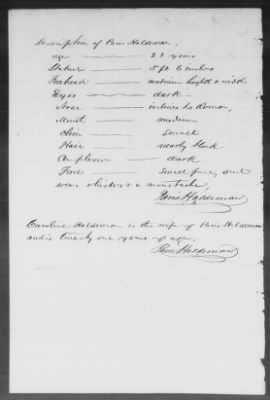 Description of Paris Haldeman,
age — 28 years
Stature — 5 ft 6 inches
Forehead — medium height & width
Eyes — dark
Nose — inclines to Roman,
Mouth — medium
Chin — small
Hair — nearly black
Complexion — dark
Face — small face, and
wears whiskers & a moustache,
Paris Haldeman
Caroline Haldeman is the wife of Paris Haldeman
and is twenty one years of age,
Paris Haldeman